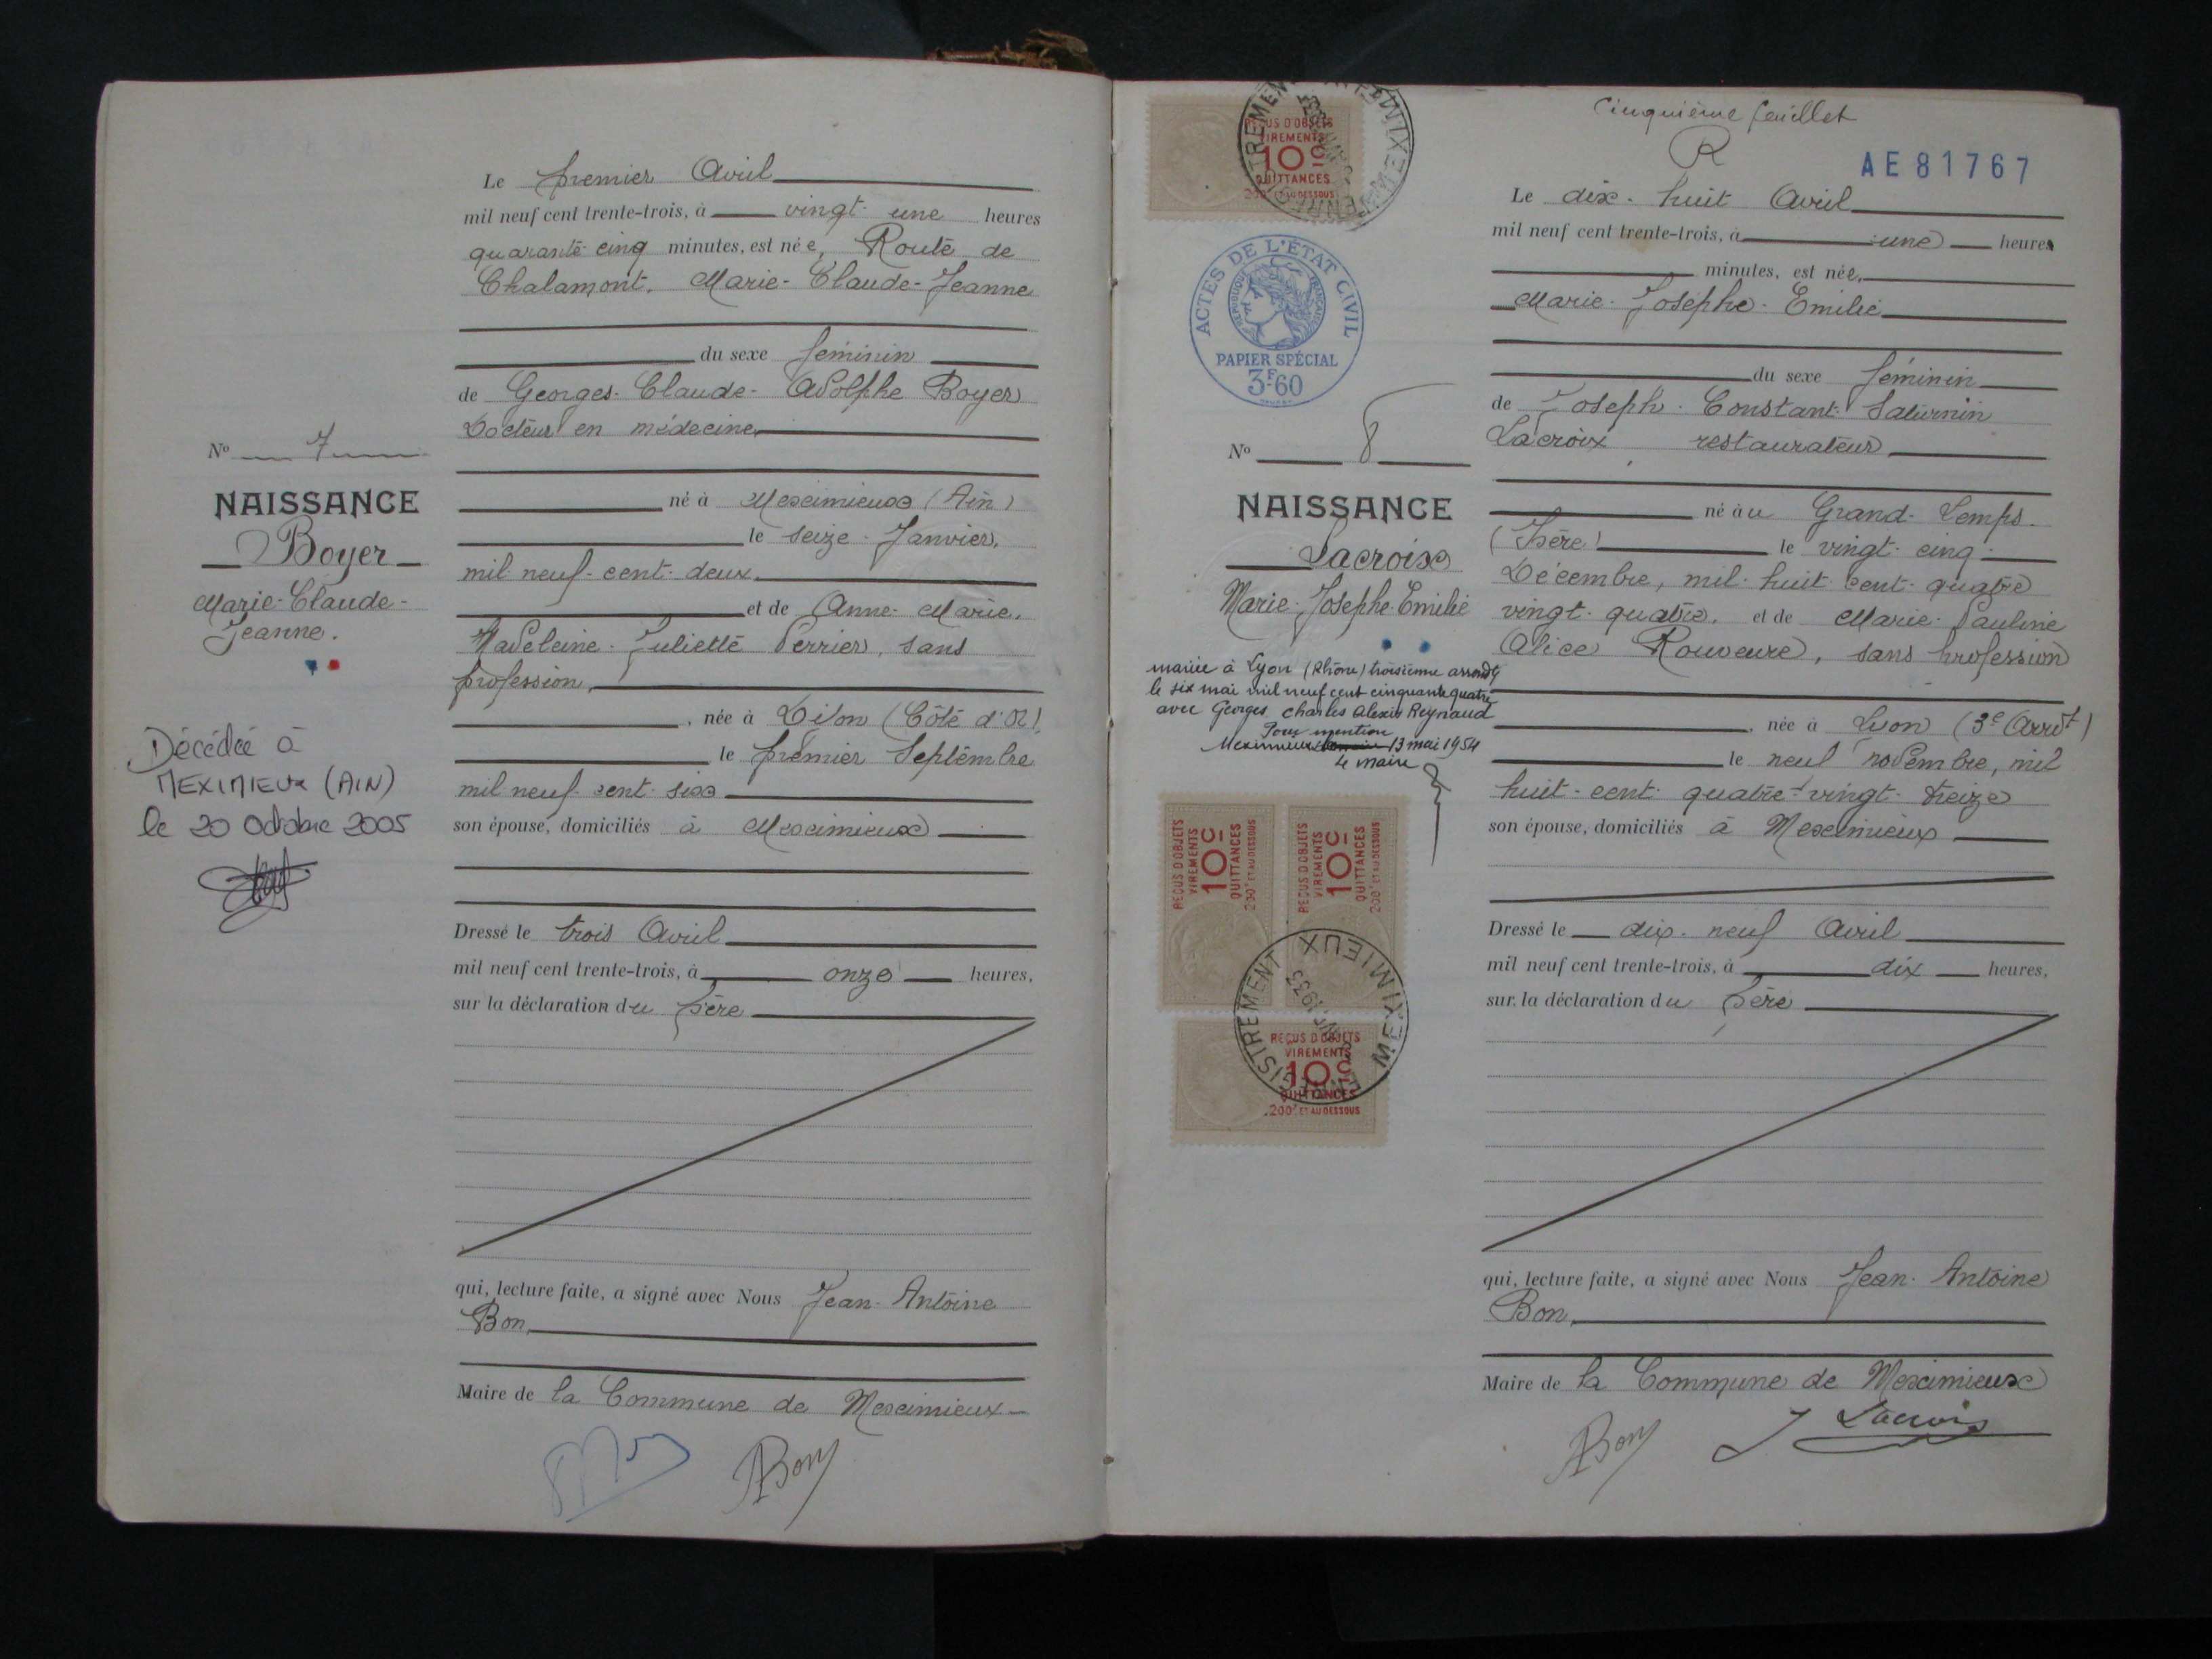 Le premier Avril
mil neuf cent trente-trois, à vingt-une heures
quarante-cinq minutes, est née, Route de
Chalamont, Marie-Claude-Jeanne
du sexe féminin
de Georges-Claude-Adolphe Boyer
Docteur en médecine
né à Meximieux (Ain)
le seize Janvier,
mil neuf-cent-deux,
et de Anne-Marie,
Madeleine-Juliette Perrier, sans
profession,
, née à Dijon (Côte d'Or)
le premier Septembre
mil neuf-cent-six
son épouse, domiciliés à Meximieux
Dressé le trois Avril
mil neuf cent trente-trois, à onze heures,
sur la déclaration du père
qui, lecture faite, a signé avec Nous Jean-Antoine
Bon,
Maire de la Commune de Meximieux
ABon
No 7
NAISSANCE
Boyer
Marie-Claude-
Jeanne.
Décédée à
MEXIMIEUX (AIN)
le 20 Octobre 2005
Cinquième feuillet
R
AE81767
Le dix-huit Avril
mil neuf cent trente-trois, à une heures
minutes, est née,
Marie-Josèphe-Emilie
du sexe féminin
de Joseph-Constant-Saturnin
Lacroix restaurateur
né au Grand-Lemps
(Isère) le vingt-cinq
Décembre, mil-huit cent-quatre
vingt-quatre, et de Marie-Pauline
Alice Rouveure, sans profession
, née à Lyon (3e Arrt)
le neuf novembre, mil
huit-cent-quatre-vingt-treize
son épouse, domiciliés à Meximieux
Dressé le dix-neuf Avril
mil neuf cent trente-trois, à dix heures,
sur la déclaration du père
qui, lecture faite, a signé avec Nous Jean-Antoine
Bon,
Maire de la Commune de Meximieux
ABon J Lacroix
REÇUS D'OBJETS
VIREMENTS
10c
QUITTANCES
200F ET AU DESSOUS
ENREGISTREMENT MEXIMIEUX
ACTES DE L'ÉTAT CIVIL
RÉPUBLIQUE FRANÇAISE
PAPIER SPÉCIAL
3F60
No 8
NAISSANCE
Lacroix
Marie-Josèphe-Emilie
mariée à Lyon (Rhône) troisième arrondt
le six mai mil neuf cent cinquante quatre
avec Georges Charles Alexis Reynaud
Pour mention
Meximieux 13 mai 1954
Le maire
REÇUS D'OBJETS
VIREMENTS
10c
QUITTANCES
200F ET AU DESSOUS
REÇUS D'OBJETS
VIREMENTS
10c
QUITTANCES
200F ET AU DESSOUS
REÇUS D'OBJETS
VIREMENTS
10c
QUITTANCES
200F ET AU DESSOUS
ENREGISTREMENT MEXIMIEUX
1933